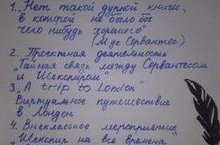 1. Нет такой дурной книги,
в которой не было бы
чего нибудь хорошего
(М де Сервантес)
2. Проектная деятельность
"Тайная связь между Сервантесом
и Шекспиром"
3. "A trip to London"
Виртуальное путешествие
в Лондон
4. Внеклассное мероприятие
"Шекспир на все времена